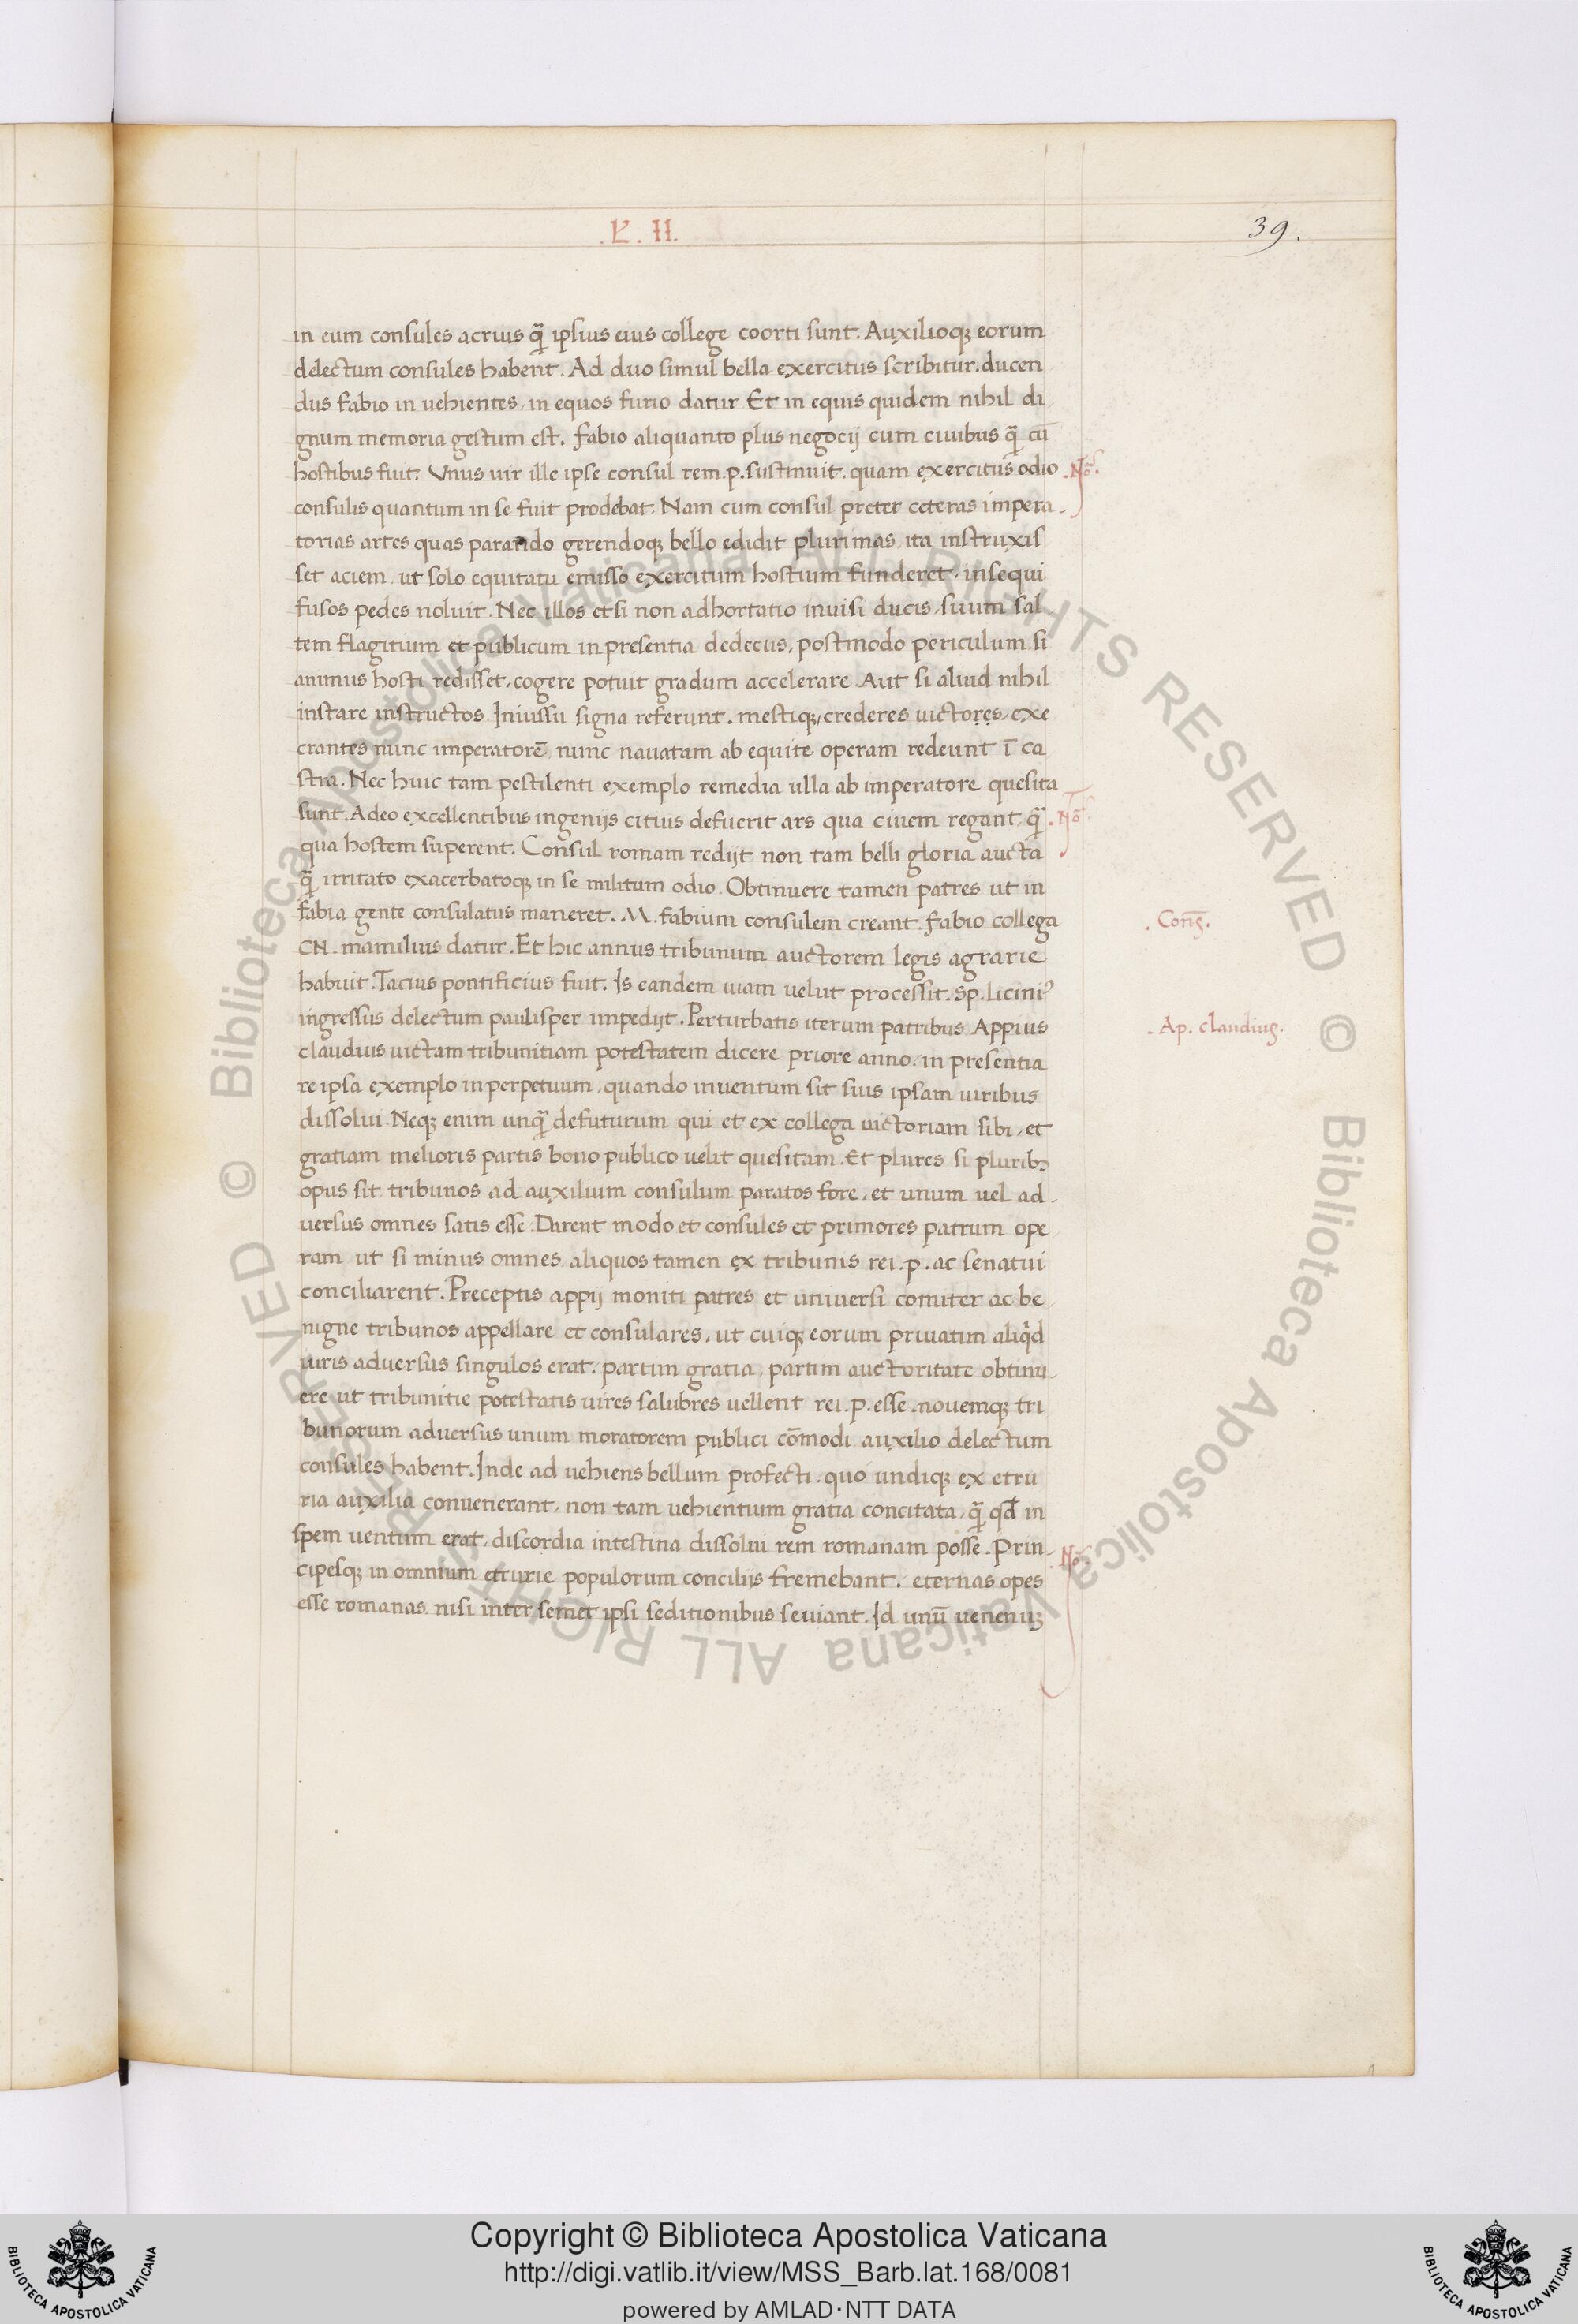 .L. II.
39.
in eum consules acrius q̃ ipsius eius college coorti sunt. Auxilioqꝫ eorum
delectum consules habent. Ad duo simul bella exercitus scribitur. ducen
dus fabio in uehientes, in equos furio datur Et in equis quidem nihil di
gnum memoria gestum est. fabio aliquanto plus negocij cum ciuibus q̃ cū
hostibus fuit. Vnus uir ille ipse consul rem .p. sustinuit. quam exercitus odio
.Nō.
consulis quantum in se fuit prodebat. Nam cum consul preter ceteras impera
torias artes quas parando gerendoqꝫ bello edidit plurimas, ita instruxis
set aciem, ut solo equitatu emisso exercitum hostium funderet, insequi
fusos pedes noluit. Nec illos etsi non adhortatio inuisi ducis, suum sal
tem flagitium et publicum in presentia dedecus, postmodo periculum si
animus hosti redisset, cogere potuit gradum accelerare. Aut si aliud nihil
instare instructos. Iniussu signa referunt. mestiqꝫ, crederes uictores, exe
crantes nunc imperatorē nunc nauatam ab equite operam redeunt ī ca
stra. Nec huic tam pestilenti exemplo remedia ulla ab imperatore quesita
sunt. Adeo excellentibus ingenijs citius defuerit ars qua ciuem regant q̃
.Nō.
qua hostem superent. Consul romam redijt non tam belli gloria aucta
q̃ irritato exacerbatoqꝫ in se militum odio. Obtinuere tamen patres ut in
fabia gente consulatus maneret. M. fabium consulem creant. fabio collega
. Con̄s.
CN. mamilius datur. Et hic annus tribunum auctorem legis agrarie
habuit. Tacius pontificius fuit. Is eandem uiam uelut processit. Sp. liciniꝰ
ingressus delectum paulisper impedijt. Perturbatis iterum patribus Appius
. Ap. claudius.
claudius uictam tribunitiam potestatem dicere priore anno. in presentia
re ipsa exemplo in perpetuum, quando inuentum sit suis ipsam uiribus
dissolui. Neqꝫ enim unq̃ defuturum qui et ex collega uictoriam sibi, et
gratiam melioris partis bono publico uelit quesitam. Et plures si pluribꝫ
opus sit tribunos ad auxilium consulum paratos fore, et unum uel ad
uersus omnes satis esse. Darent modo et consules et primores patrum ope
ram ut si minus omnes aliquos tamen ex tribunis rei .p. ac senatui
conciliarent. Preceptis appij moniti patres et uniuersi comiter ac be
nigne tribunos appellare et consulares, ut cuiqꝫ eorum priuatim aliq̇d
iuris aduersus singulos erat. partim gratia, partim auctoritate obtinu
ere ut tribunitie potestatis uires salubres uellent rei .p. esse. nouemqꝫ tri
bunorum aduersus unum moratorem publici cōmodi auxilio delectum
consules habent. Inde ad uehiens bellum profecti. quo undiqꝫ ex etru
ria auxilia conuenerant, non tam uehientium gratia concitata, q̃ qđ in
spem uentum erat, discordia intestina dissolui rem romanam posse. Prin
cipesqꝫ in omnium etrurie populorum concilijs fremebant. eternas opes
.Nō.
esse romanas nisi inter semet ipsi seditionibus seuiant. Id unū uenenūꝫ
Copyright © Biblioteca Apostolica Vaticana
http://digi.vatlib.it/view/MSS_Barb.lat.168/0081
powered by AMLAD·NTT DATA
BIBLIOTECA APOSTOLICA VATICANA
BIBLIOTECA APOSTOLICA VATICANA
© Biblioteca Apostolica Vaticana ALL RIGHTS RESERVED © Biblioteca Apostolica Vaticana ALL RIGHTS RESERVED